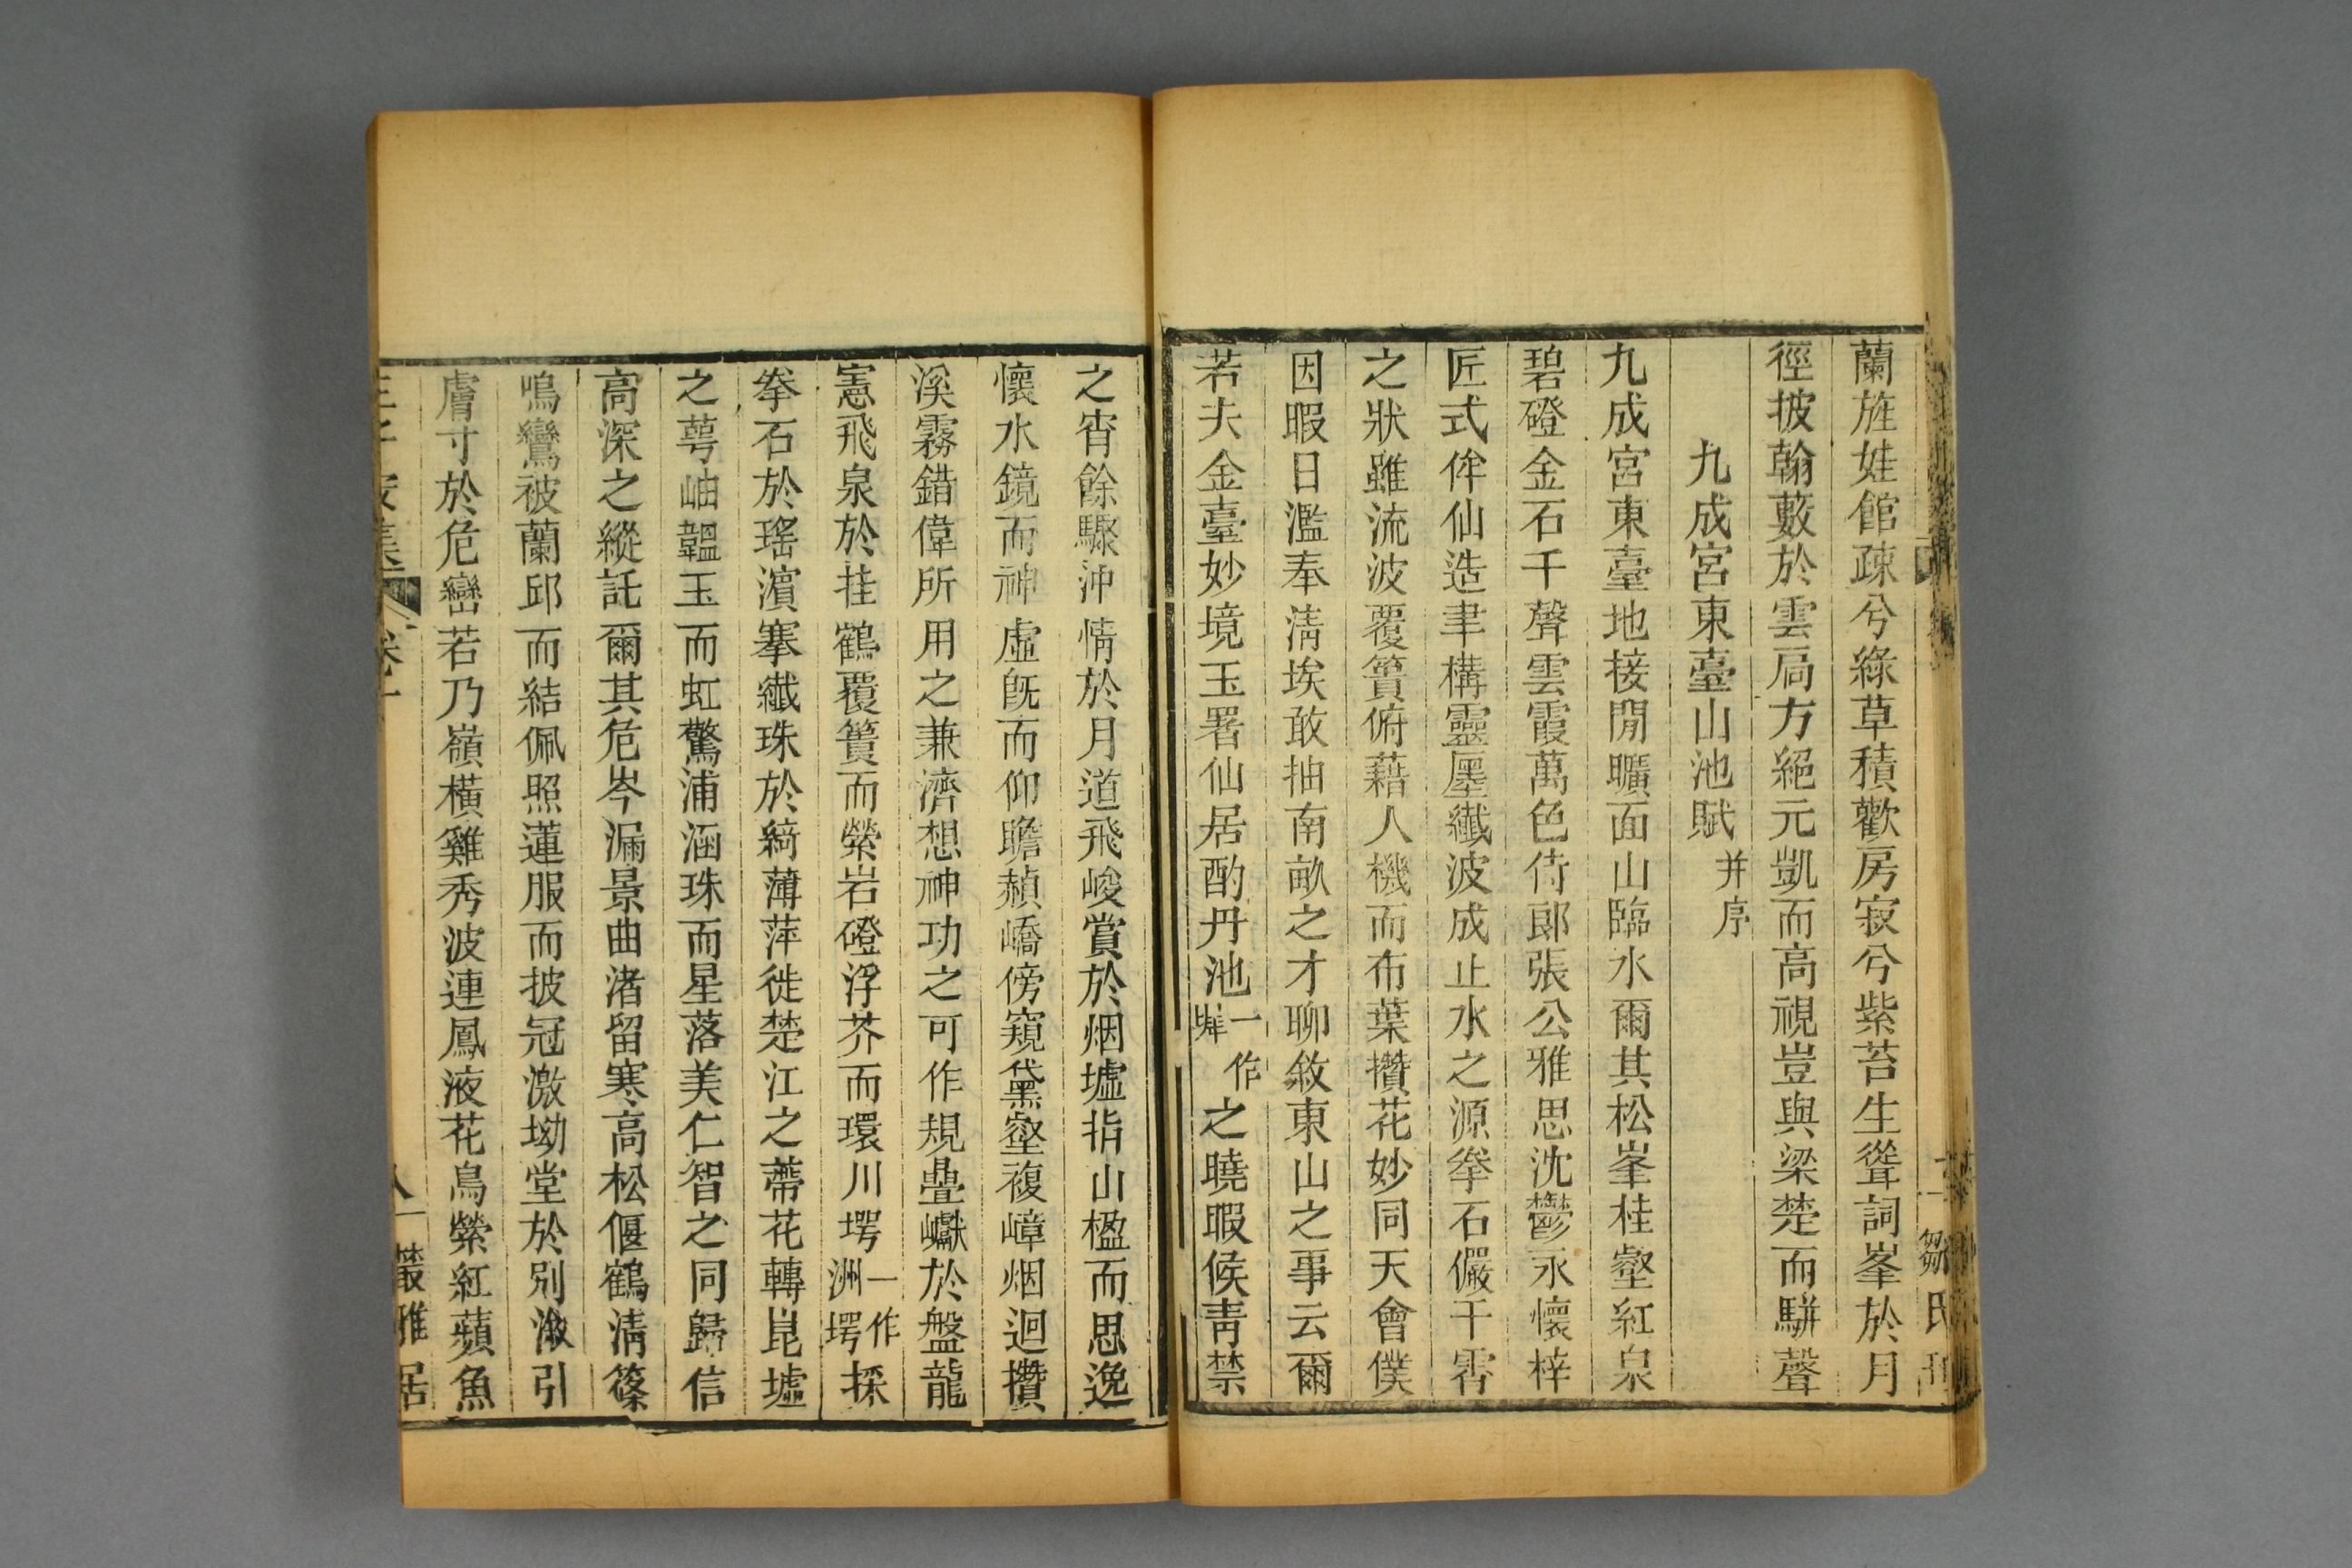 蘭旌娃館疎兮綠草積歡房寂兮紫苔生聳詞峯於月
徑披翰藪於雲扃方絕元凱而高視豈與梁楚而駢聲
九成宮東臺山池賦并序
九成宮東臺地接閒曠面山臨水爾其松峯桂壑紅泉
碧磴金石千聲雲霞萬色侍郎張公雅思沈鬱永懷梓
匠式侔仙造聿構靈壓纖波成止水之源拳石儼干霄
之狀雖流波覆簣俯藉人機而布葉攢花妙同天會僕
因暇日濫奉淸埃敢抽南畝之才聊敘東山之事云爾
若夫金臺妙境玉署仙居酌丹池一作墀之曉暇候靑禁
之宵餘驟沖情於月道飛峻賞於烟墟指山楹而思逸
懷水鏡而神虛旣而仰瞻赬嶠傍窺黛壑複嶂烟迴攢
溪霧錯偉所用之兼濟想神功之可作規疊巘於盤龍
憲飛泉於挂鶴覆簣而縈岩磴浮芥而環川堮一作洲堮採
拳石於瑤濵搴纖珠於綺薄萍徙楚江之蔕花轉崑墟
之萼岫韞玉而虹驚浦涵珠而星落美仁智之同歸信
高深之縱託爾其危岑漏景曲渚留寒高松偃鶴淸篠
鳴鸞被蘭邱而結佩照蓮服而披冠激坳堂於別潊引
膚寸於危巒若乃嶺橫雞秀波連鳳液花鳥縈紅蘋魚
王子安集 卷二 八 叢雅居
鄒氏刊